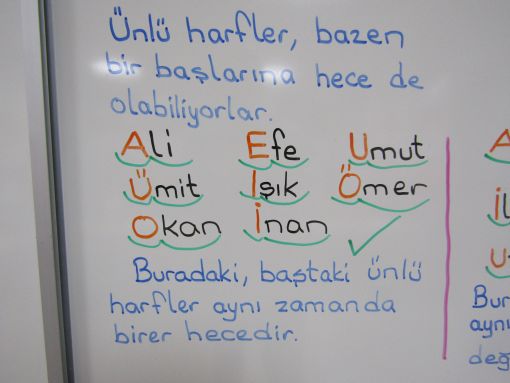 Ünlü harfler, bazen
bir başlarına hece de
olabiliyorlar.
Ali Efe Umut
Ümit Işık Ömer
Okan İnan
Buradaki, baştaki ünlü
harfler aynı zamanda
birer hecedir.
A
İl
U
Bur
aynı
değ